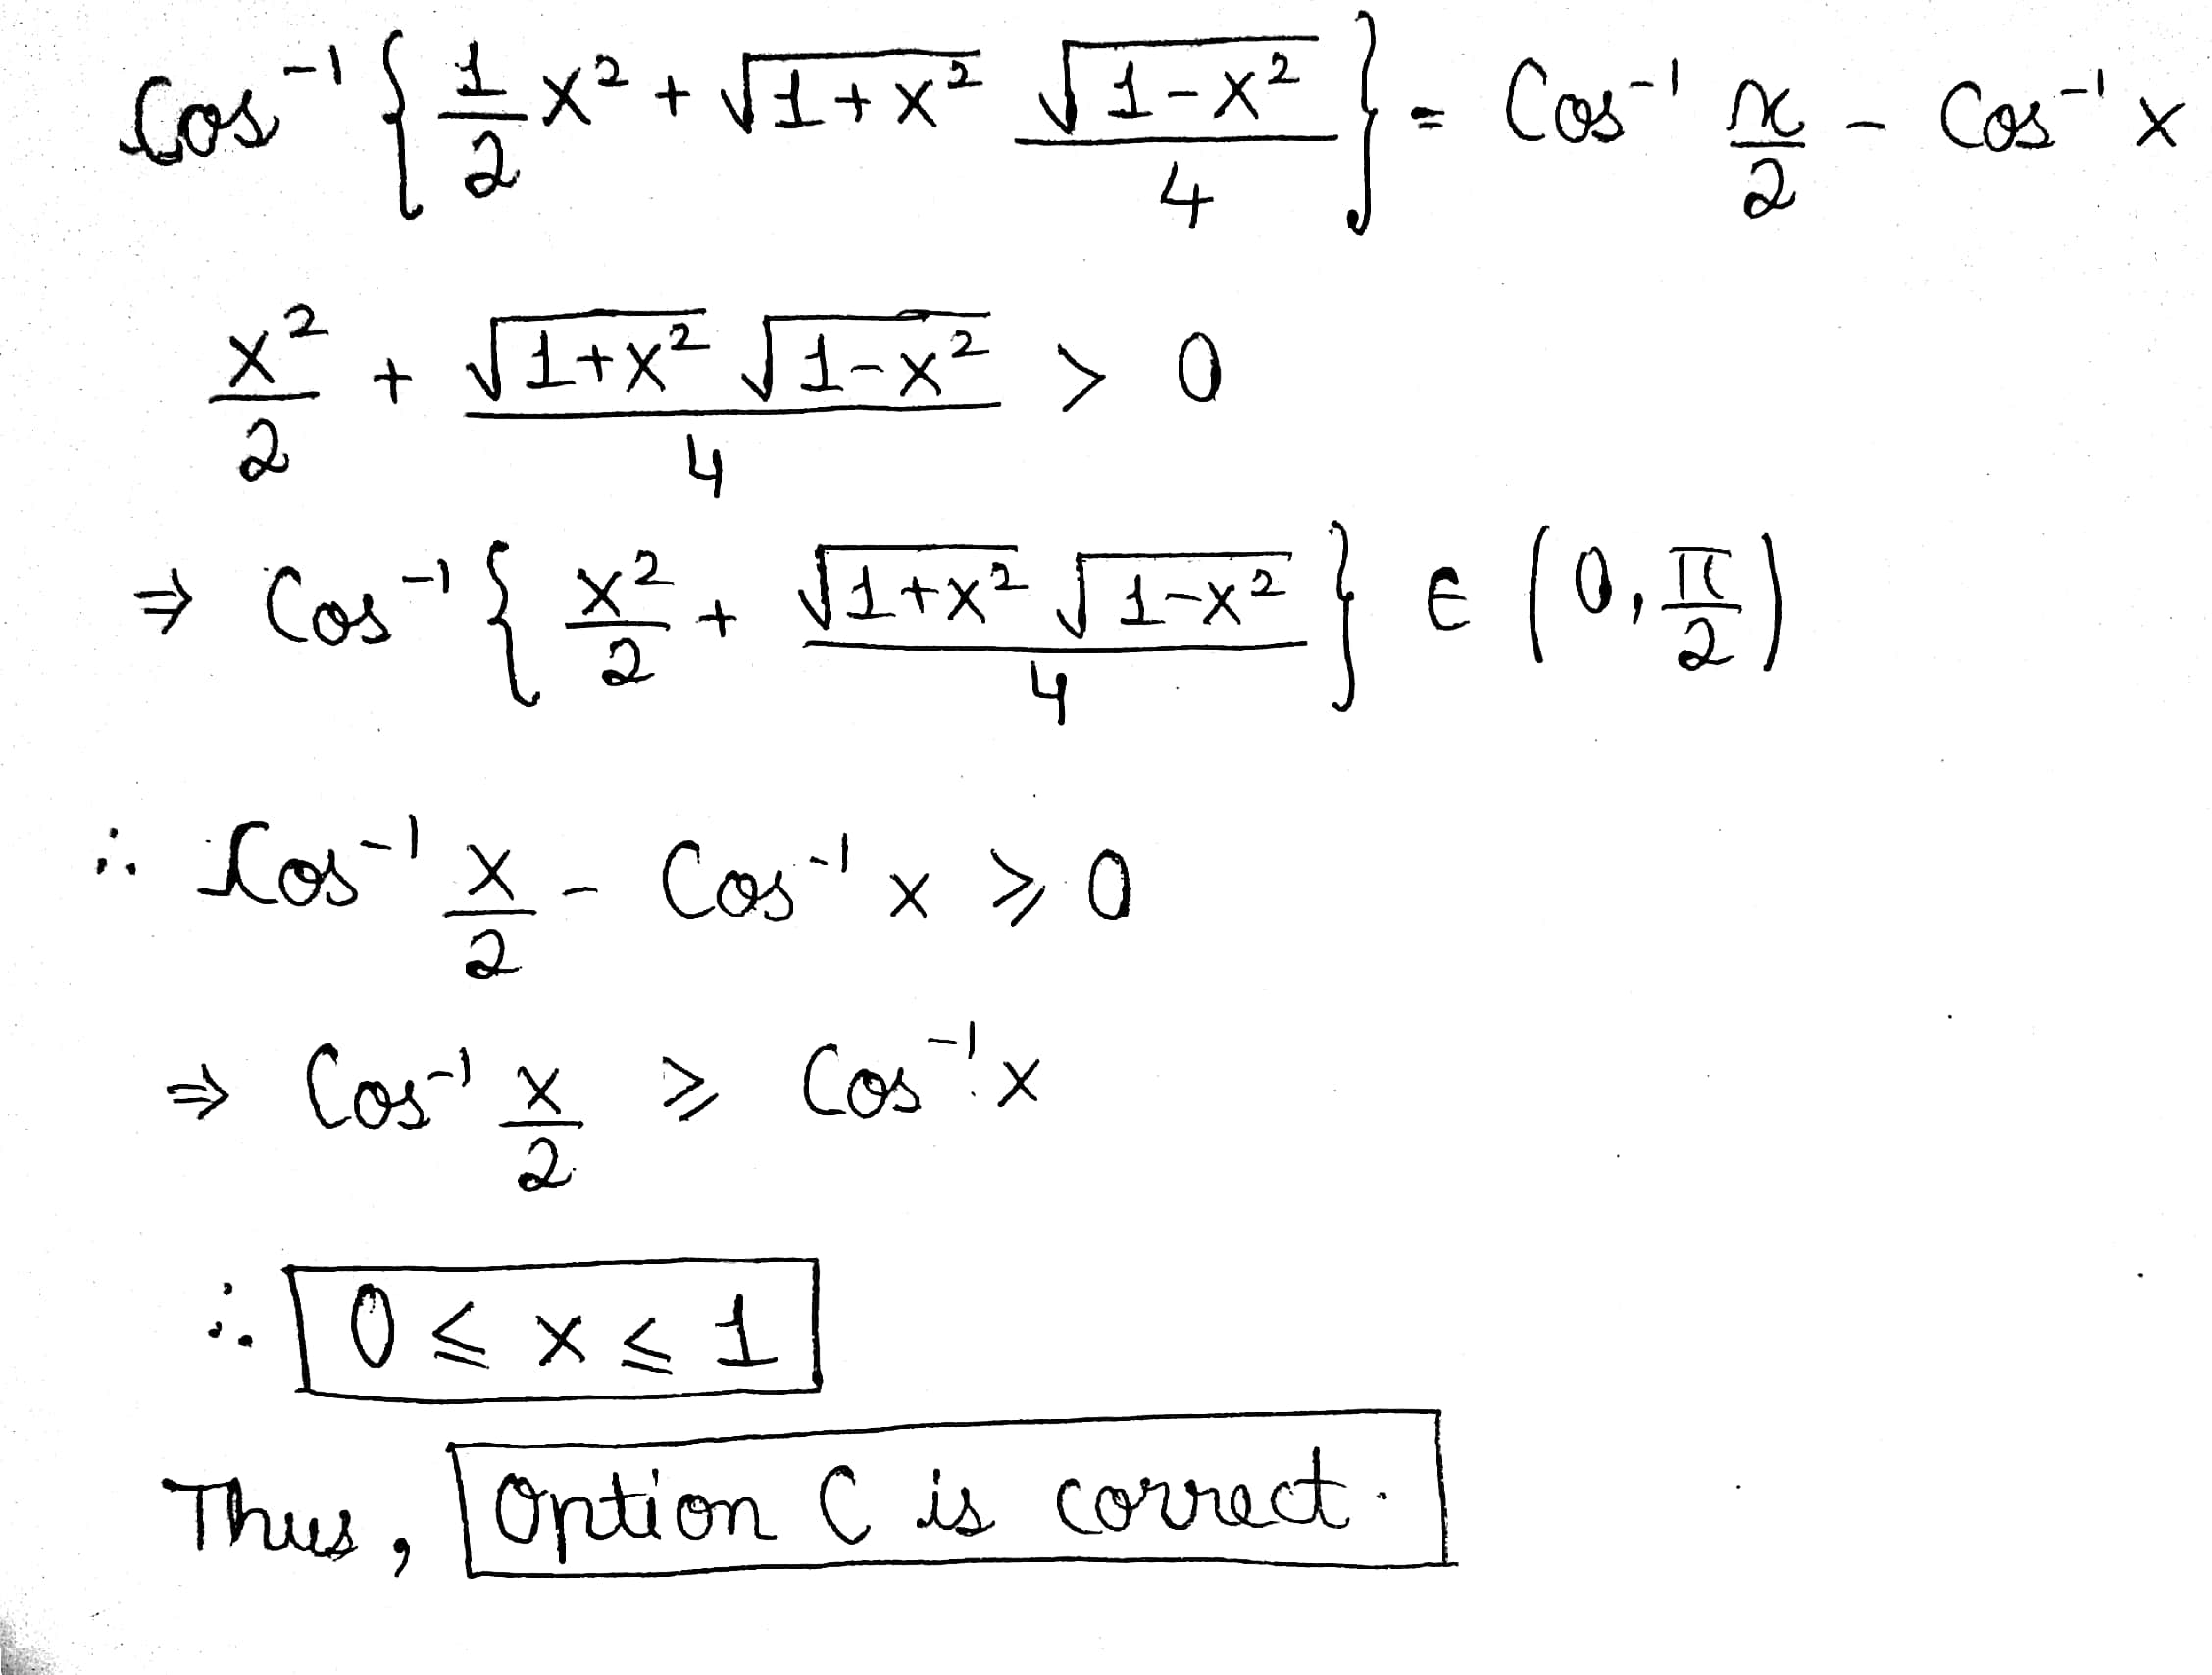 Cos⁻¹ { 1/2 x² + √(1+x²) √(1-x²)/4 } = Cos⁻¹ x/2 - Cos⁻¹ x
x²/2 + √(1+x²) √(1-x²)/4 > 0
⇒ Cos⁻¹ { x²/2 + √(1+x²) √(1-x²)/4 } ∈ (0, π/2)
∴ Cos⁻¹ x/2 - Cos⁻¹ x ⩾ 0
⇒ Cos⁻¹ x/2 ⩾ Cos⁻¹ x
∴ 0 ⩽ x ⩽ 1
Thus, Option C is correct.